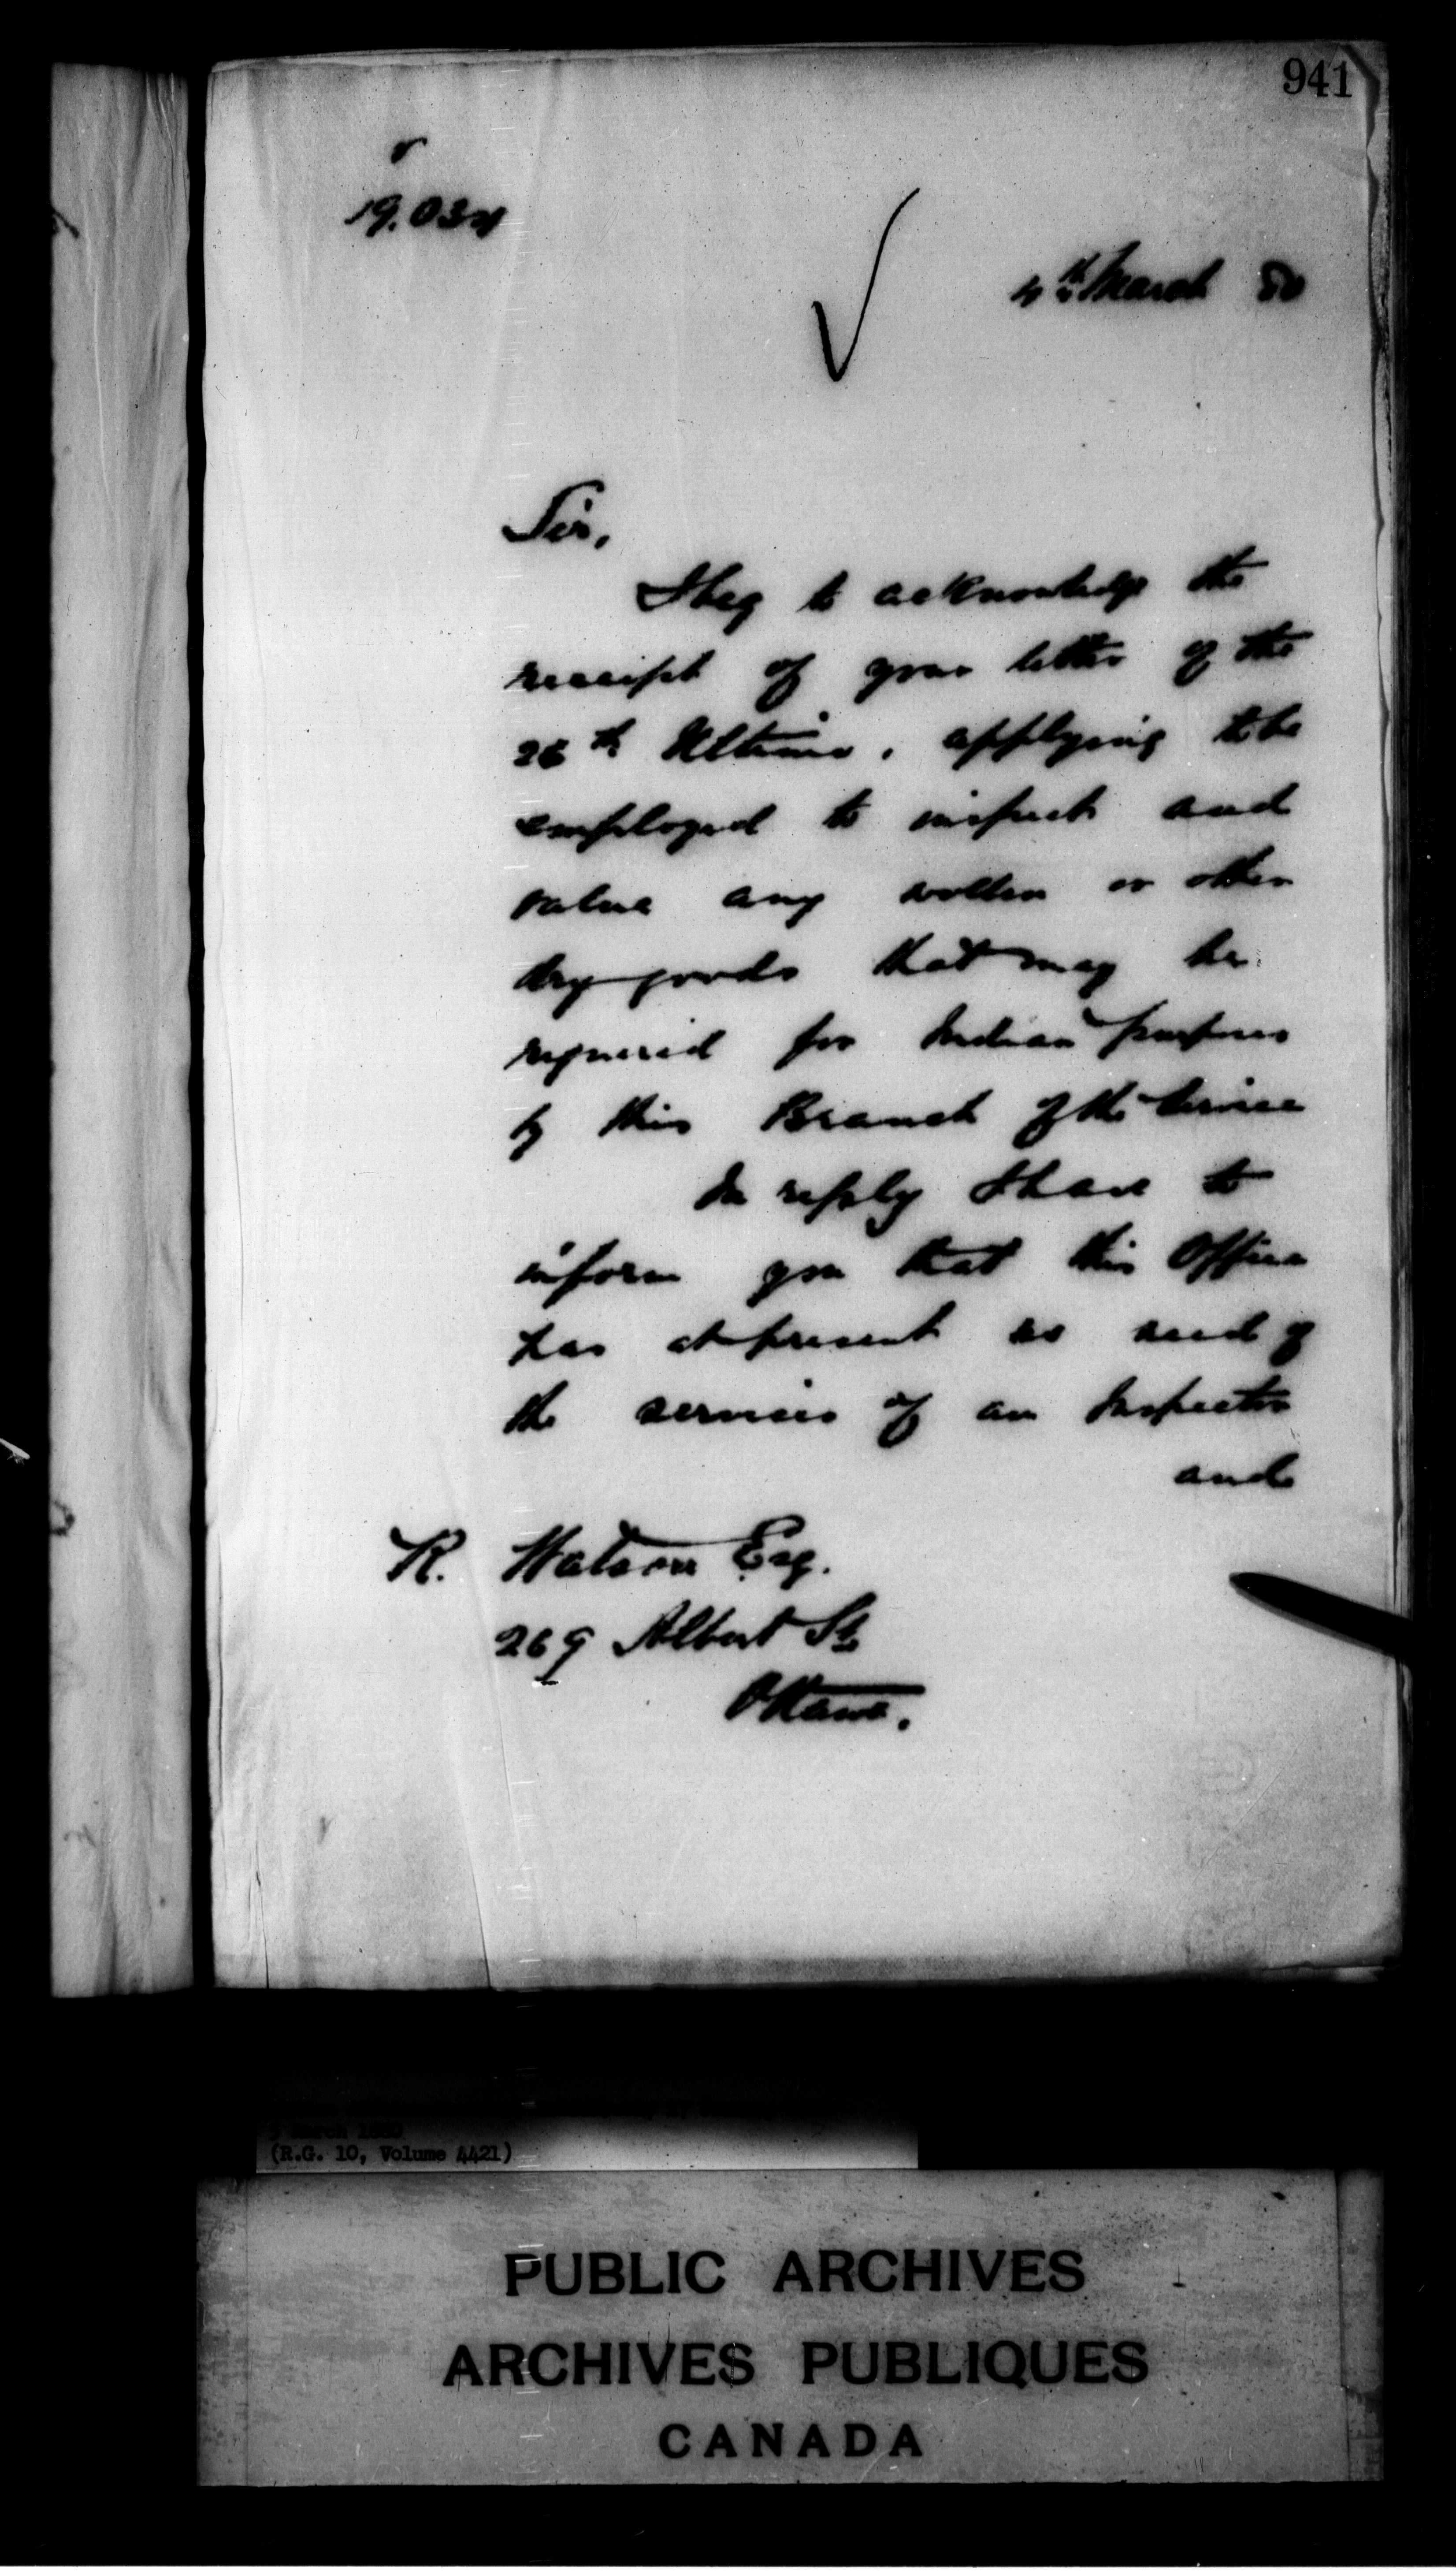 941
19.034
4th March 80
Sir,
I beg to acknowledge the
receipt of your letter of the
26th Ultimo, applying to be
employed to inspect and
value any wollen or other
dry goods that may be
required for Indian purposes
by this Branch of the Service
In reply I have to
inform you that this Office
has at present no need of
the services of an Inspector
and
R. Watson Esq.
269 Albert St
Ottawa.
March 1880
(R.G. 10, Volume 4421)
PUBLIC ARCHIVES
ARCHIVES PUBLIQUES
CANADA